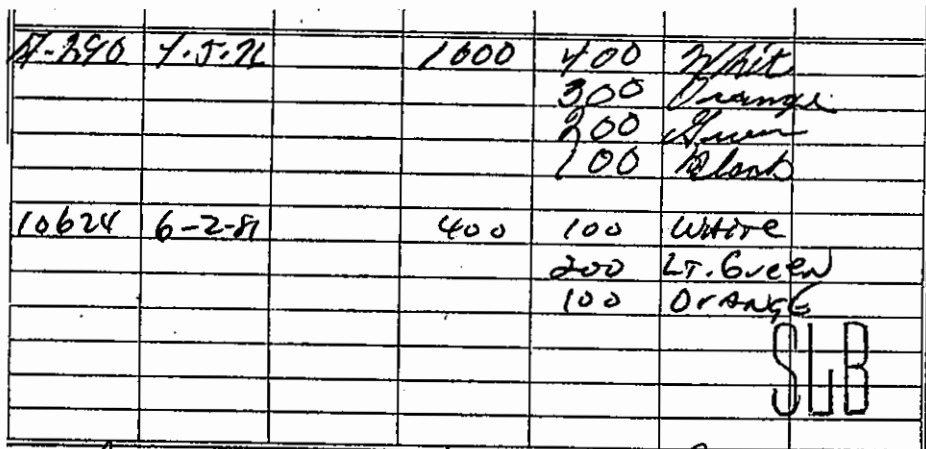 1000 400 White
300 Orange
200 Green
100 Blank
10624 6-2-81 400 100 WHITE
200 LT. Green
100 OrANGE
SLB